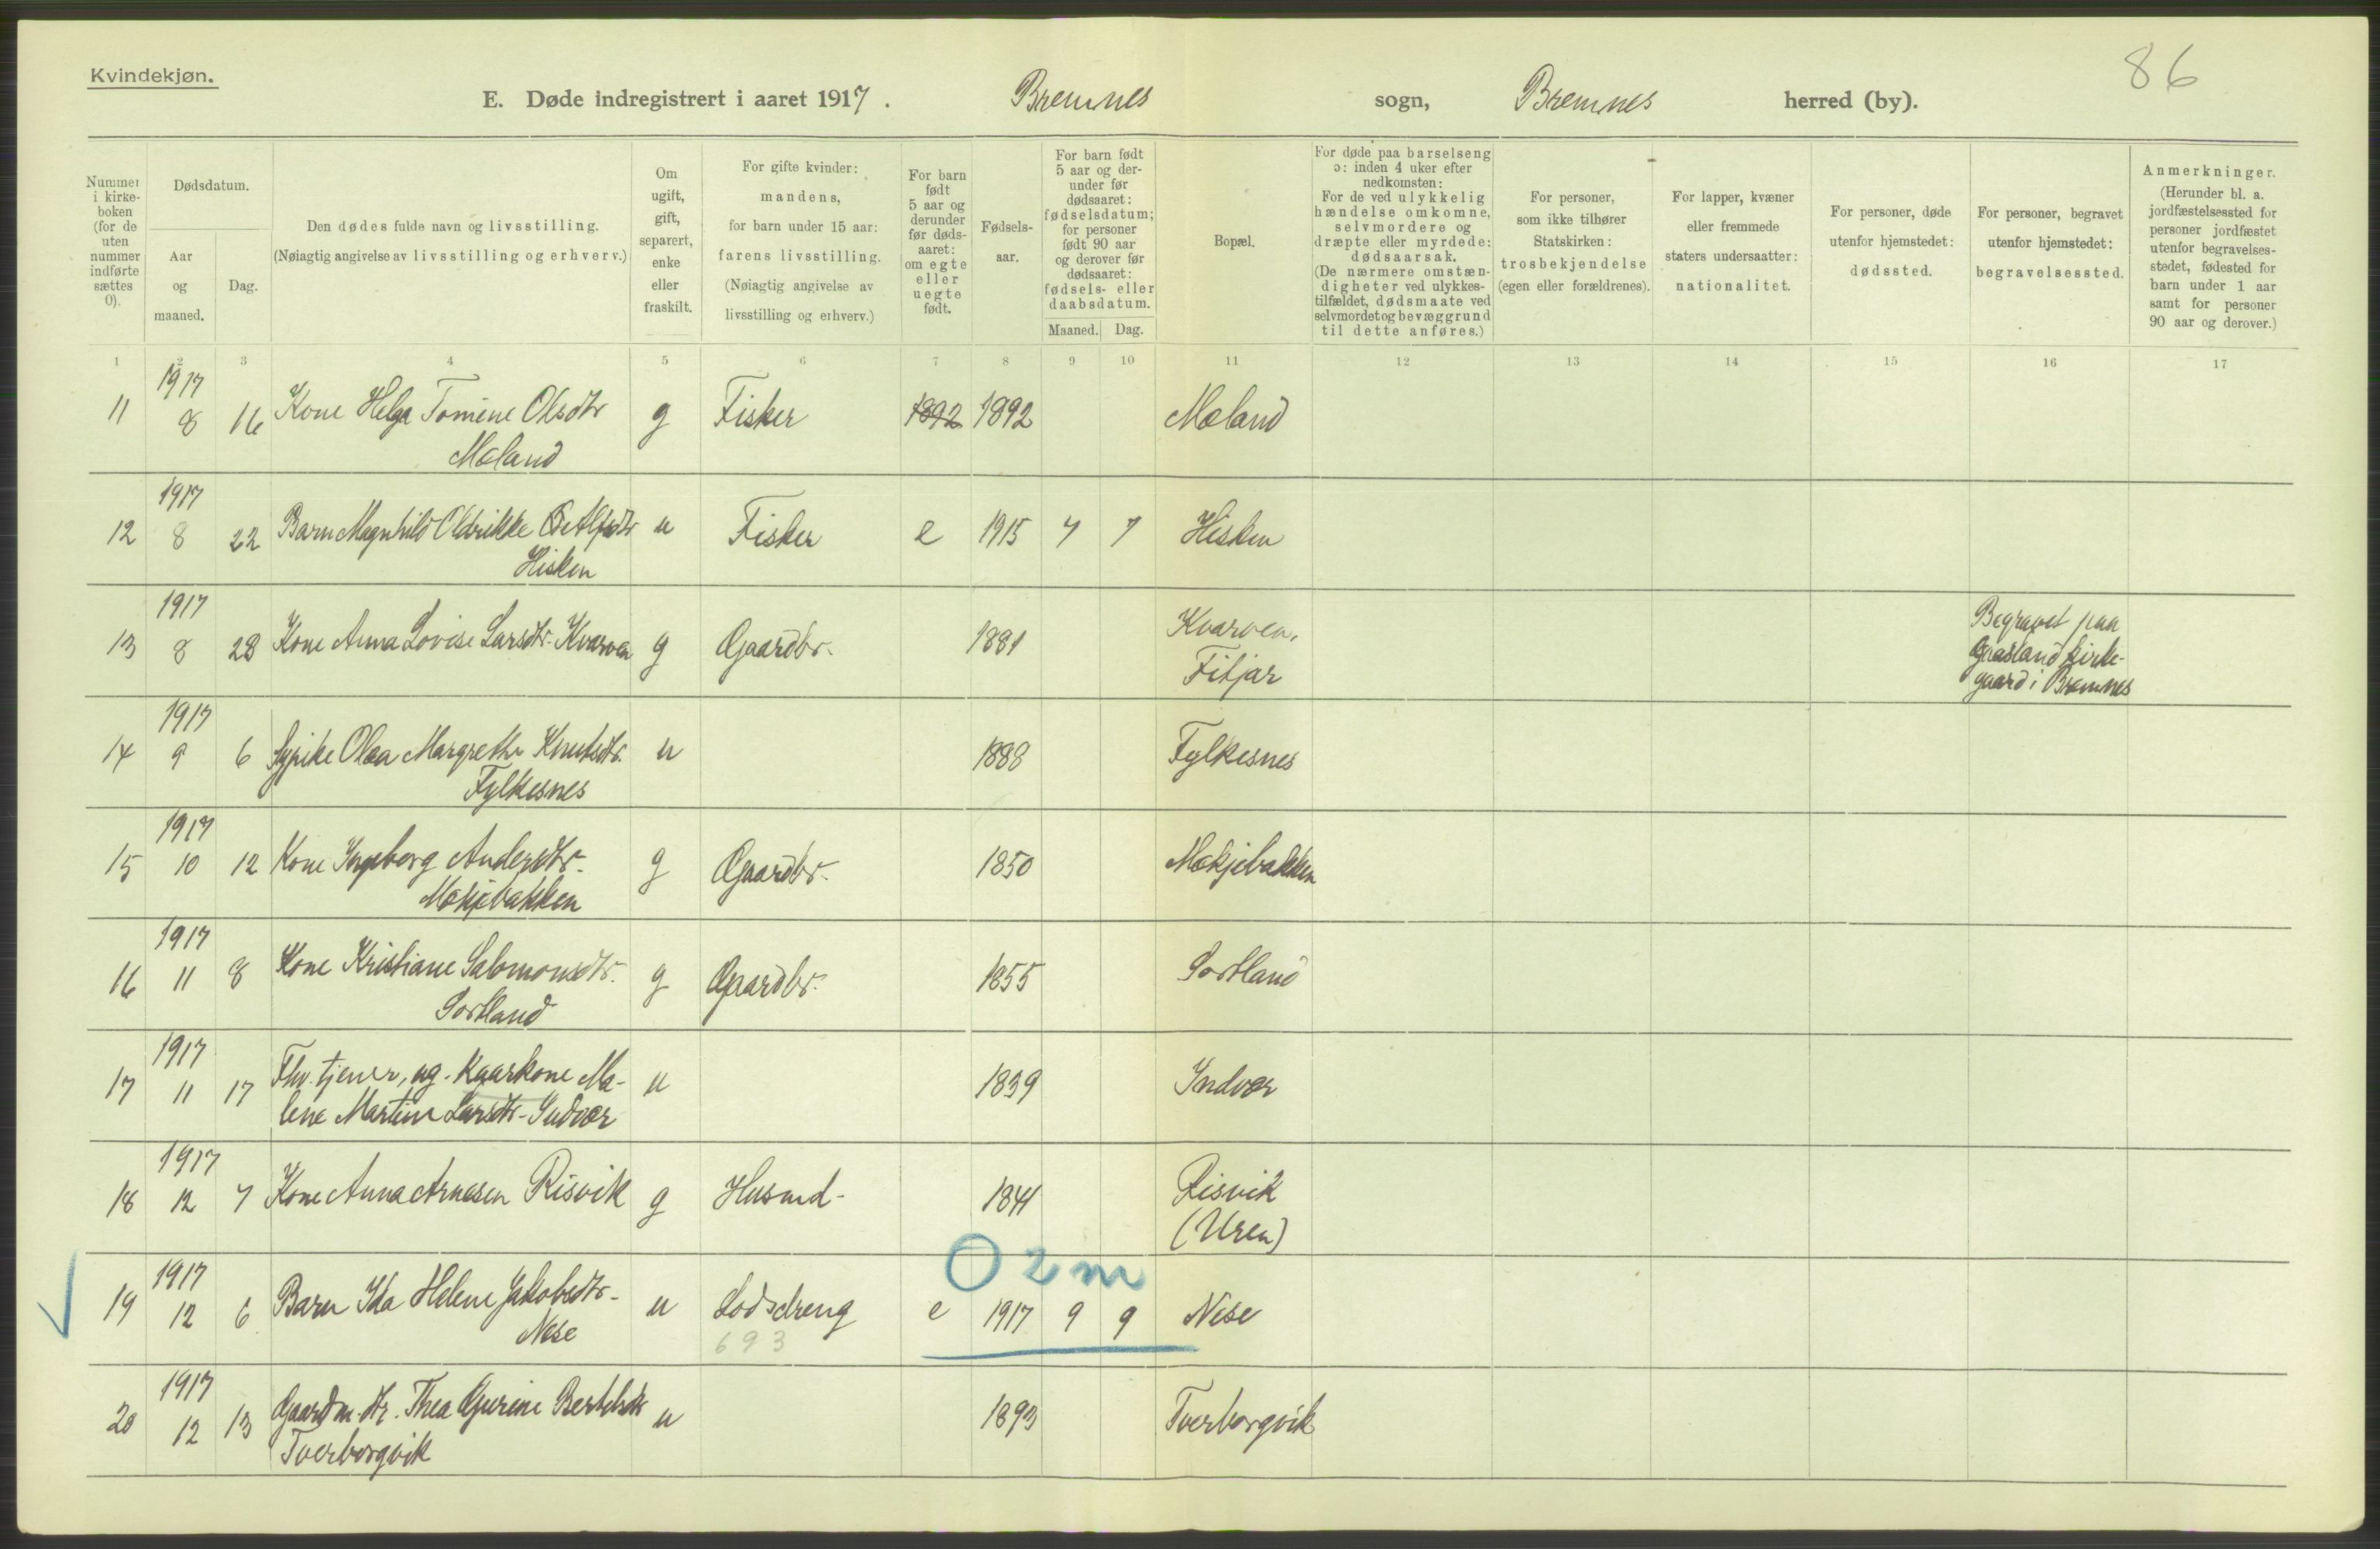 86
Kvindekjøn.
E. Døde indregistrert i aaret 1917. Bremnes sogn, Bremnes herred (by).
Nummer i kirke-boken (for de uten nummer indførte sættes 0).
Dødsdatum.
Aar og maaned.
Dag.
Den dødes fulde navn og livsstilling.
(Nøiagtig angivelse av livsstilling og erhverv.)
Om ugift, gift, separert, enke eller fraskilt.
For gifte kvinder: mandens, for barn under 15 aar: farens livsstilling.
(Nøiagtig angivelse av livsstilling og erhverv.)
For barn født 5 aar og derunder før døds-aaret: om egte eller uegte født.
Fødsels-aar.
For barn født 5 aar og der-under før dødsaaret: fødselsdatum; for personer født 90 aar og derover før dødsaaret: fødsels- eller daabsdatum.
Maaned. Dag.
Bopæl.
For døde paa barselseng ɔ: inden 4 uker efter nedkomsten: For de ved ulykkelig hændelse omkomne, selvmordere og dræpte eller myrdede: dødsaarsak.
(De nærmere omstæn-digheter ved ulykkes-tilfældet, dødsmaate ved selvmordet og bevæggrund til dette anføres.)
For personer, som ikke tilhører Statskirken: trosbekjendelse (egen eller forældrenes).
For lapper, kvæner eller fremmede staters undersaatter: nationalitet.
For personer, døde utenfor hjemstedet: dødssted.
For personer, begravet utenfor hjemstedet: begravelsessted.
Anmerkninger.
(Herunder bl. a. jordfæstelsessted for personer jordfæstet utenfor begravelses-stedet, fødested for barn under 1 aar samt for personer 90 aar og derover.)
1 2 3 4 5 6 7 8 9 10 11 12 13 14 15 16 17
1917
11 8 16 Kone Helga Tomine Olsdtr g Fisker 1892 1892 Mæland
Mæland
1917
12 8 22 Barn Magnhild Oldrikke u Fisker e 1915 7 7 Hisken
Hisken
1917
13 8 28 Kone Anna Lovise Larsdtr. Kvarven g Gaardbr. 1881 Kvarven,
Fitjar
Begravet paa
Gaasland kirke-
gaard i Bremnes
1917
14 9 6 Sypike Olea Margrethe Knutsdtr. u 1888 Fylkesnes
Fylkesnes
1917
15 10 12 Kone Ingeborg Andersdtr. g Gaardbr. 1850 Mækjebakken
Mækjebakken
1917
16 11 8 Kone Kristiane Salomonsdtr. g Gaardbr. 1855 Sortland
Sortland
1917
17 11 17 Fhv. tjener, ug. Kaarkone Ma- u 1839 Indvær
lene Martine Larsdtr. Indvær
1917
18 12 7 Kone Anna Arnesen Risvik g Husmd- 1841 Risvik
(Uren)
O 2 m
1917
19 12 6 Barn Ida Helene Jakobsdtr- u Lodsdreng e 1917 9 9 Nese
Nese
693
1917
20 12 13 Gaardm. dtr. Thea Gurine Bertelsdtr u 1893 Tverborgvik
Tverborgvik